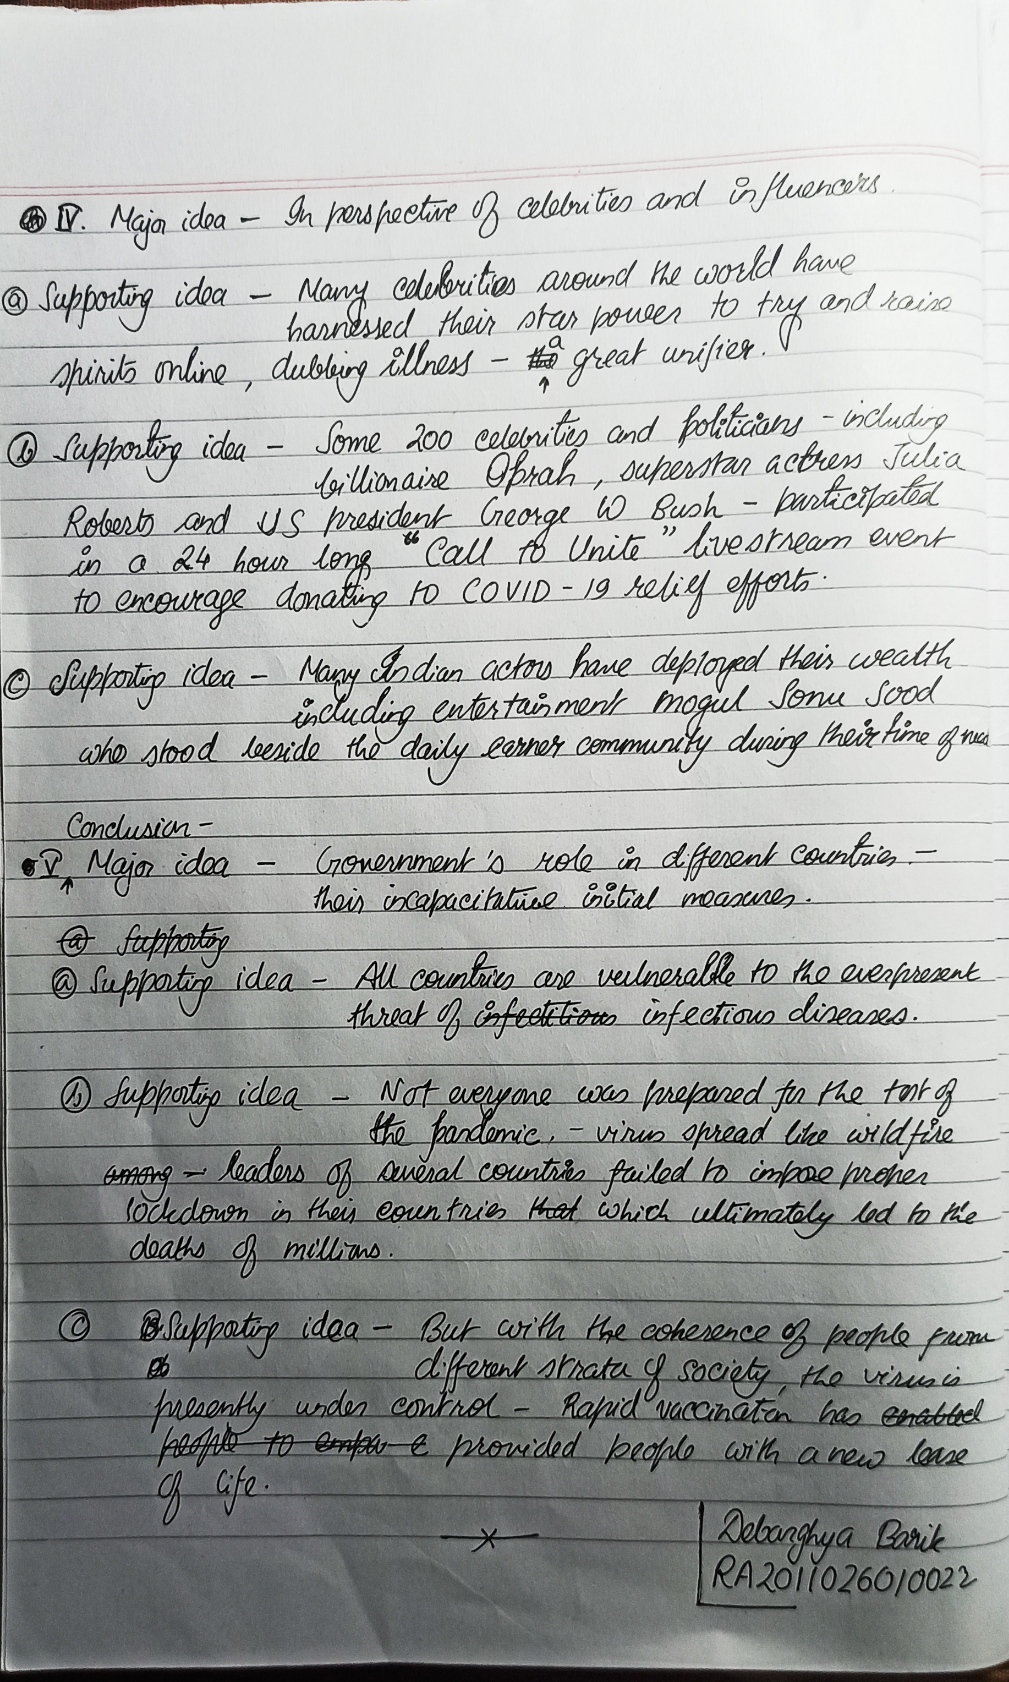 IV. Major idea - In perspective of celebrities and influencers.
ⓐ Supporting idea - Many celebrities around the world have
harnessed their star power to try and raise
spirits online, dubbing illness - a great unifier.
ⓑ Supporting idea - Some 200 celebrities and politicians - including
billionaire Oprah, superstar actress Julia
Roberts and US president George W Bush - participated
in a 24 hour long "Call to Unite" livestream event
to encourage donating to COVID-19 relief efforts.
ⓒ Supporting idea - Many Indian actors have deployed their wealth
including entertainment mogul Sonu Sood
who stood beside the daily earner community during their time of need
Conclusion -
V. Major idea - Government's role in different countries -
their incapacitative initial measures.
ⓐ Supporting
ⓐ Supporting idea - All countries are vulnerable to the everpresent
threat of infectitious infectious diseases.
ⓑ Supporting idea - Not everyone was prepared for the test of
the pandemic. - virus spread like wildfire
among - leaders of several countries failed to impose proper
lockdown in their countries that which ultimately led to the
deaths of millions.
ⓒ Supporting idea - But with the coherence of people from
different strata of society, the virus is
presently under control - Rapid vaccination has enabled
people to provided people with a new lease
of life.
Debarghya Barik
RA2011026010022